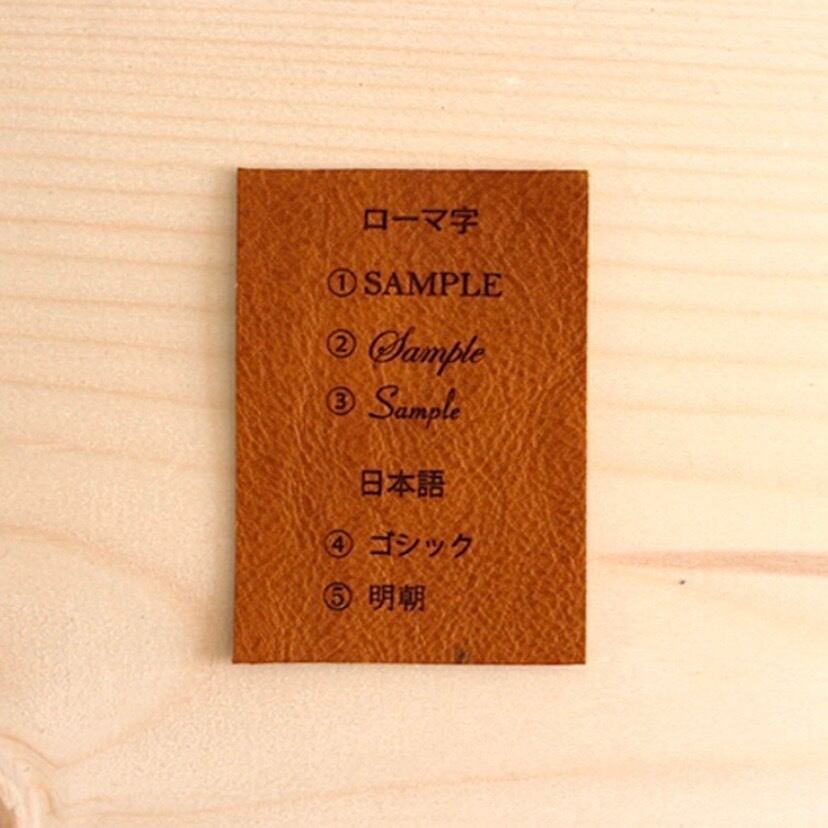 ローマ字
①SAMPLE
② Sample
③ Sample
日本語
④ ゴシック
⑤ 明朝